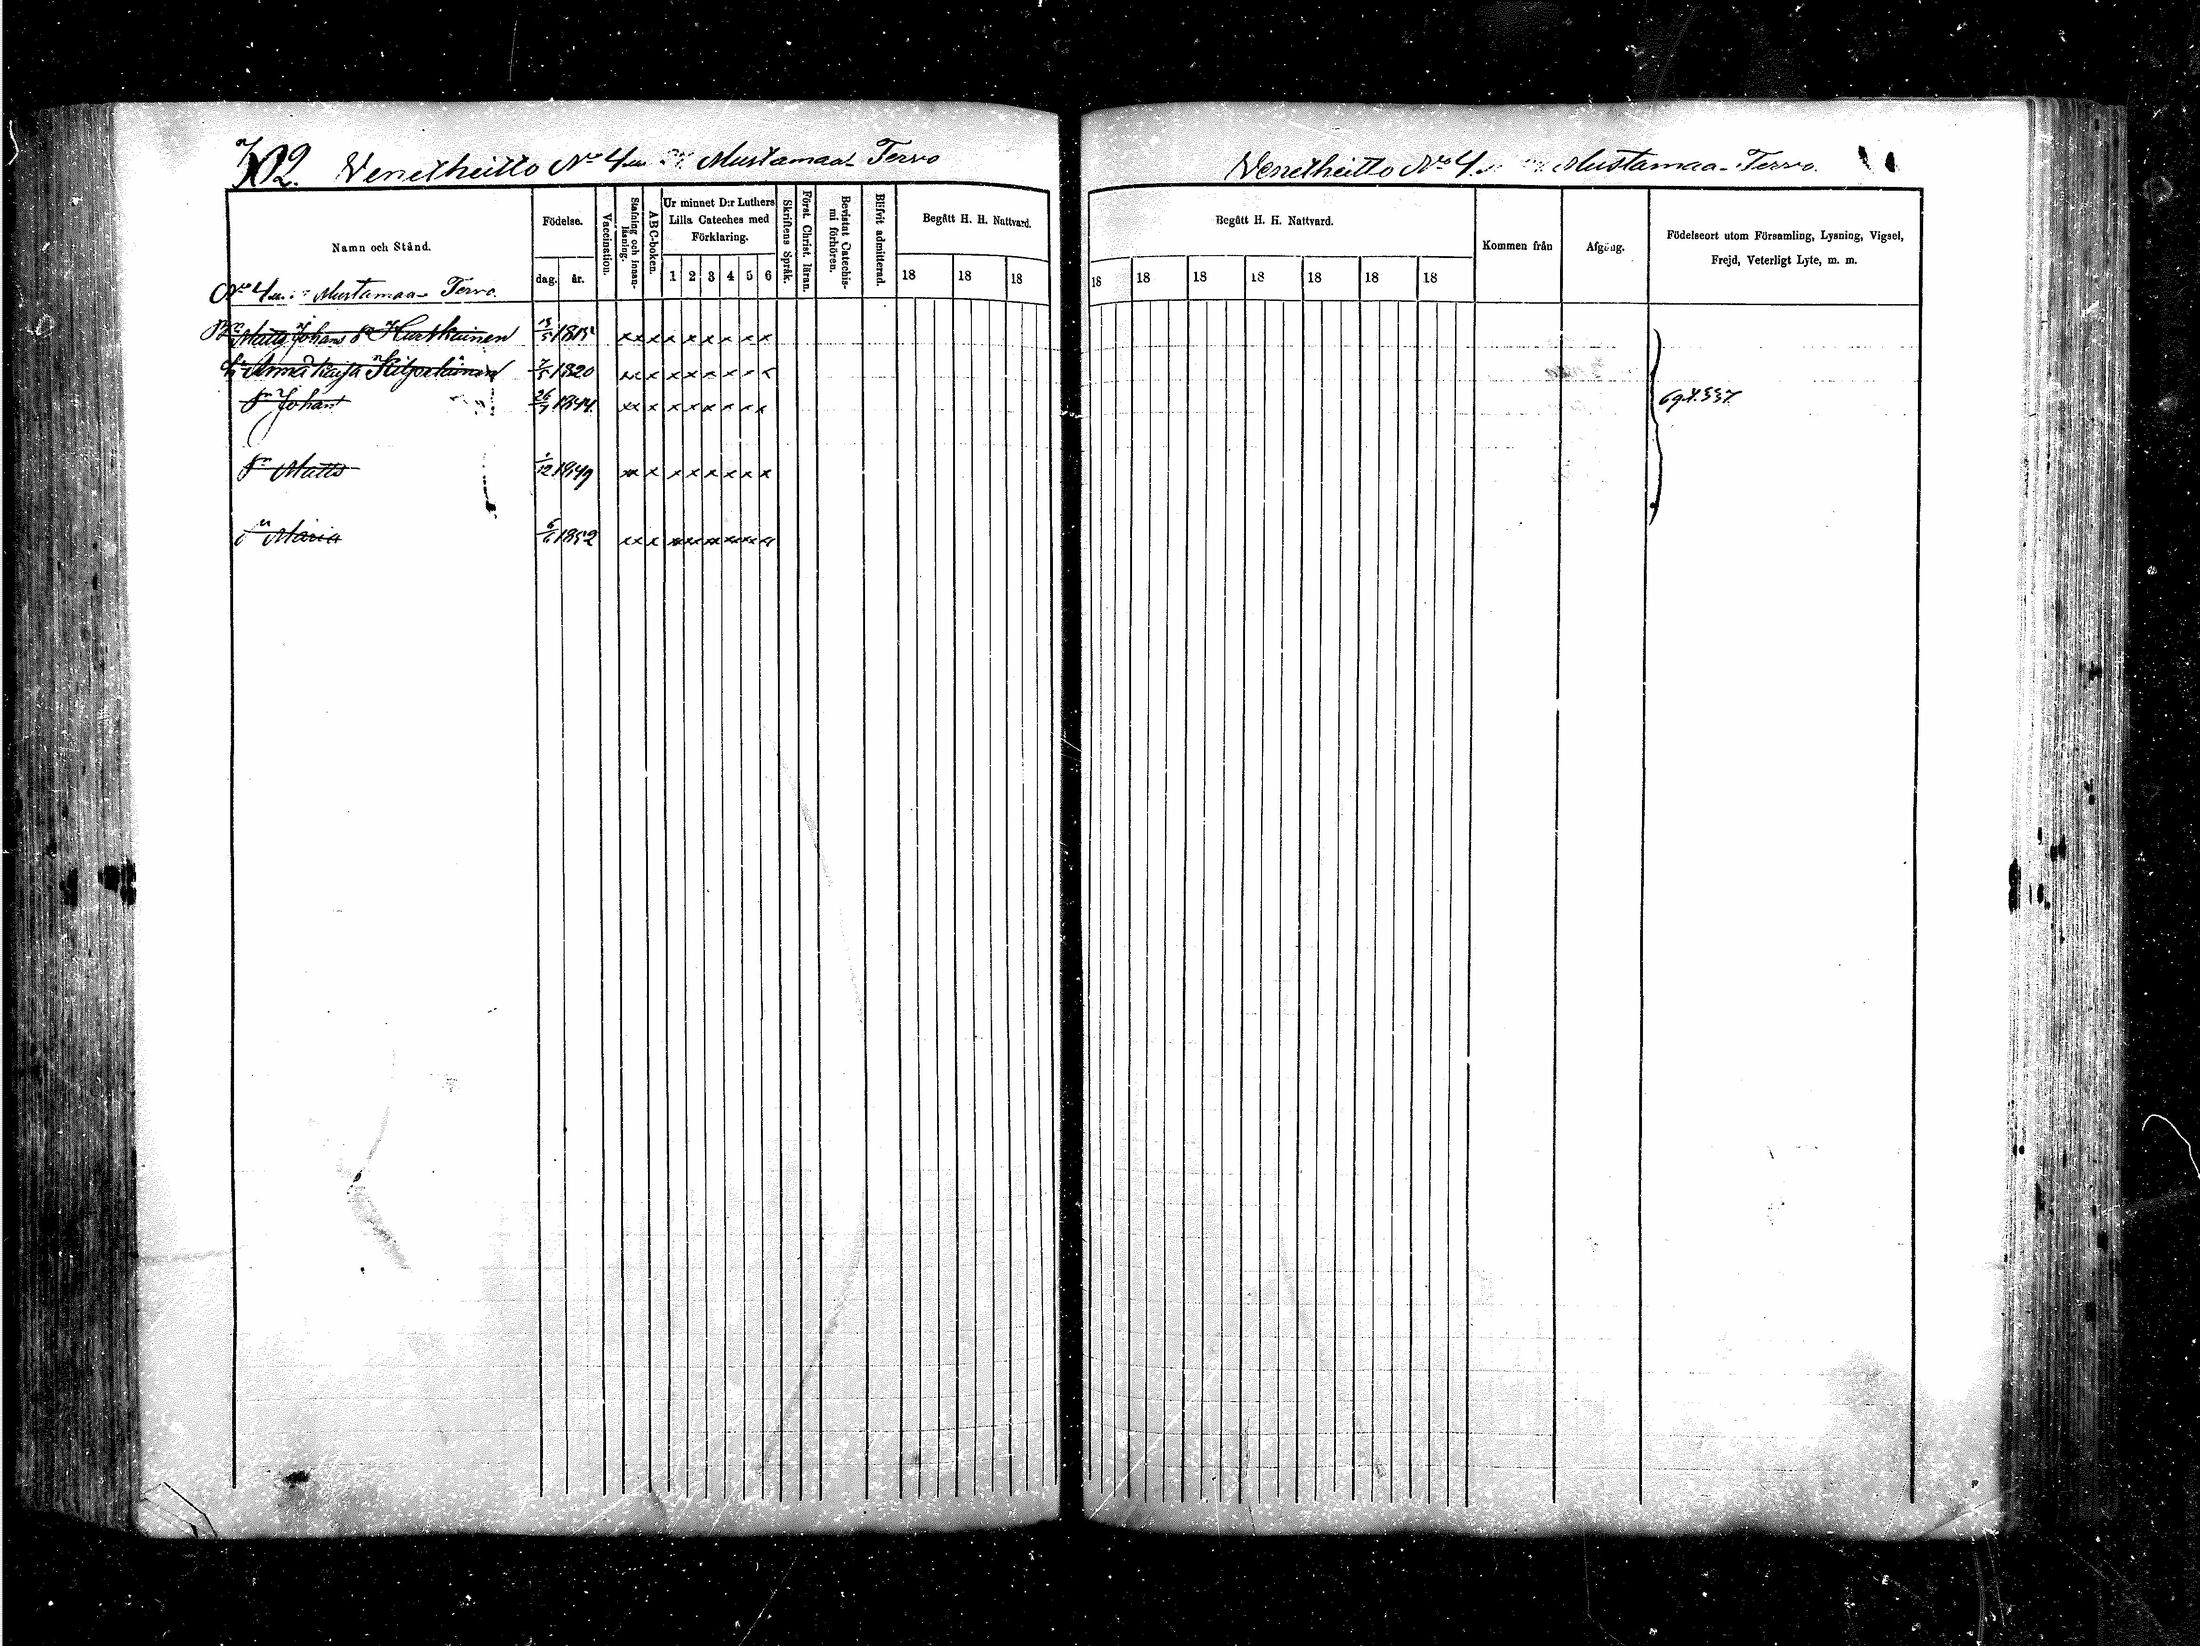 702. Venetheitto No 4 Mustamaa- Tervo
Namn och Stånd.
Födelse.
dag.
år.
Vaccination.
Stafning och Innan-
läsning.
ABC-boken.
Ur minnet D:r Luthers
Lilla Cateches med
Förklaring.
1 2 3 4 5 6
Skriftens Språk.
Först. Christ. läran.
Bevistat Catechis-
mi förhören.
Blifvit admitterad.
Begått H. H. Nattvard.
18 18 18
No 4 Mustamaa- Tervo.
Matts Johans Sn Hurskainen 1815 x x x x x x x x x
Anna Kaisa Kiljoläinen 7/5 1820 x x x x x x x x x
Sn Johan 26/7 1844 x x x x x x x x x
Sn Matts 1/12 1849 x x x x x x x x x
Maria 1852 x x x x x x x x x
Venetheitto No 4 Mustamaa- Tervo.
Begått H. H. Nattvard.
18 18 18 18 18 18 18
Kommen från
Afgång.
Födelseort utom Församling, Lysning, Vigsel,
Frejd, Veterligt Lyte, m. m.